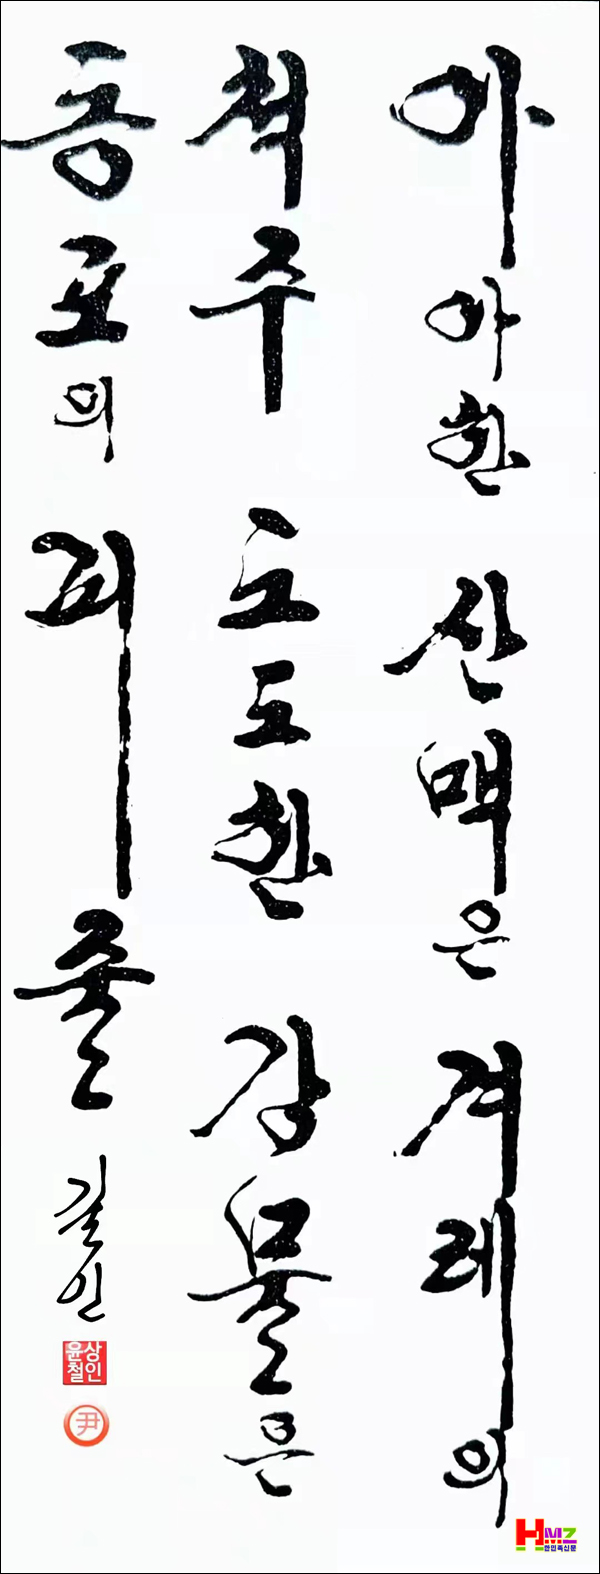 아아한 산맥은 겨레의
척주 도도한 강물은
동포의 피줄
길인
상인
윤철
尹
HMZ
한민족신문